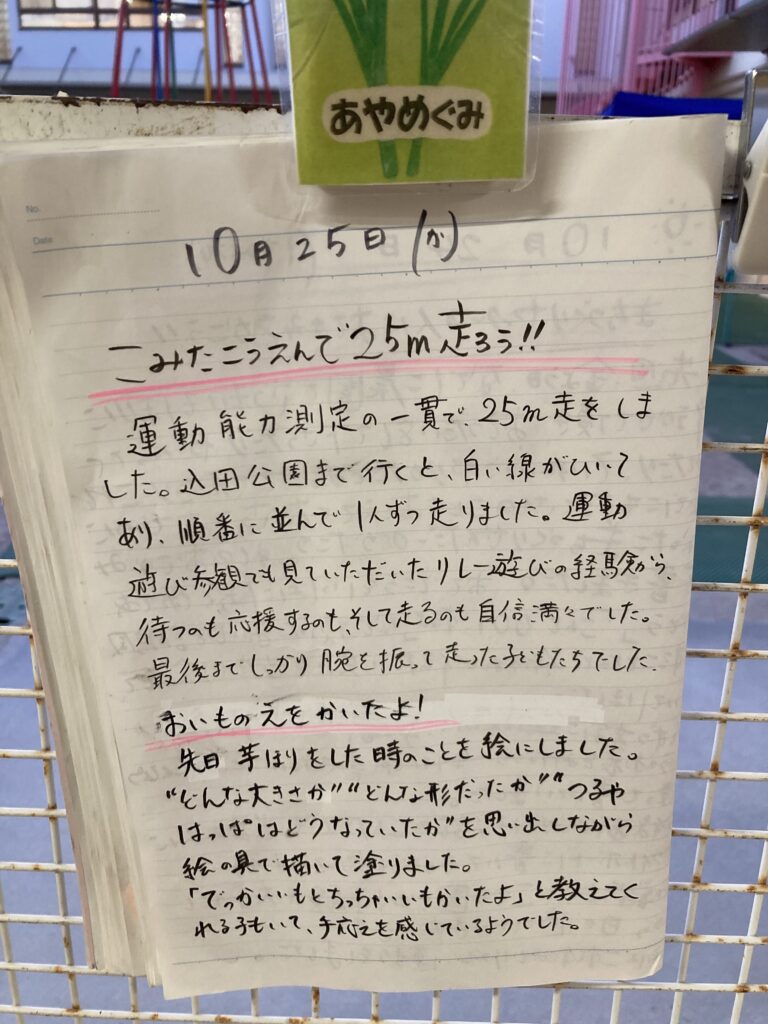 あやめぐみ
No.
Date
10月25日(火)
こみたこうえんで25m走ろう!!
運動能力測定の一貫で、25m走をしま
した。込田公園まで行くと、白い線がひいて
あり、順番に並んで1人ずつ走りました。運動
遊び参観でも見ていただいたリレー遊びの経験から、
待つのも応援するのも、そして走るのも自信満々でした。
最後までしっかり腕を振って走った子どもたちでした。
おいものえをかいたよ!
先日芋ほりをした時のことを絵にしました。
"どんな大きさか""どんな形だったか""つるや
はっぱはどうなっていたか"を思い出しながら
絵の具で描いて塗りました。
「でっかいいもとちっちゃいいもかいたよ」と教えてく
れる子もいて、手応えを感じているようでした。